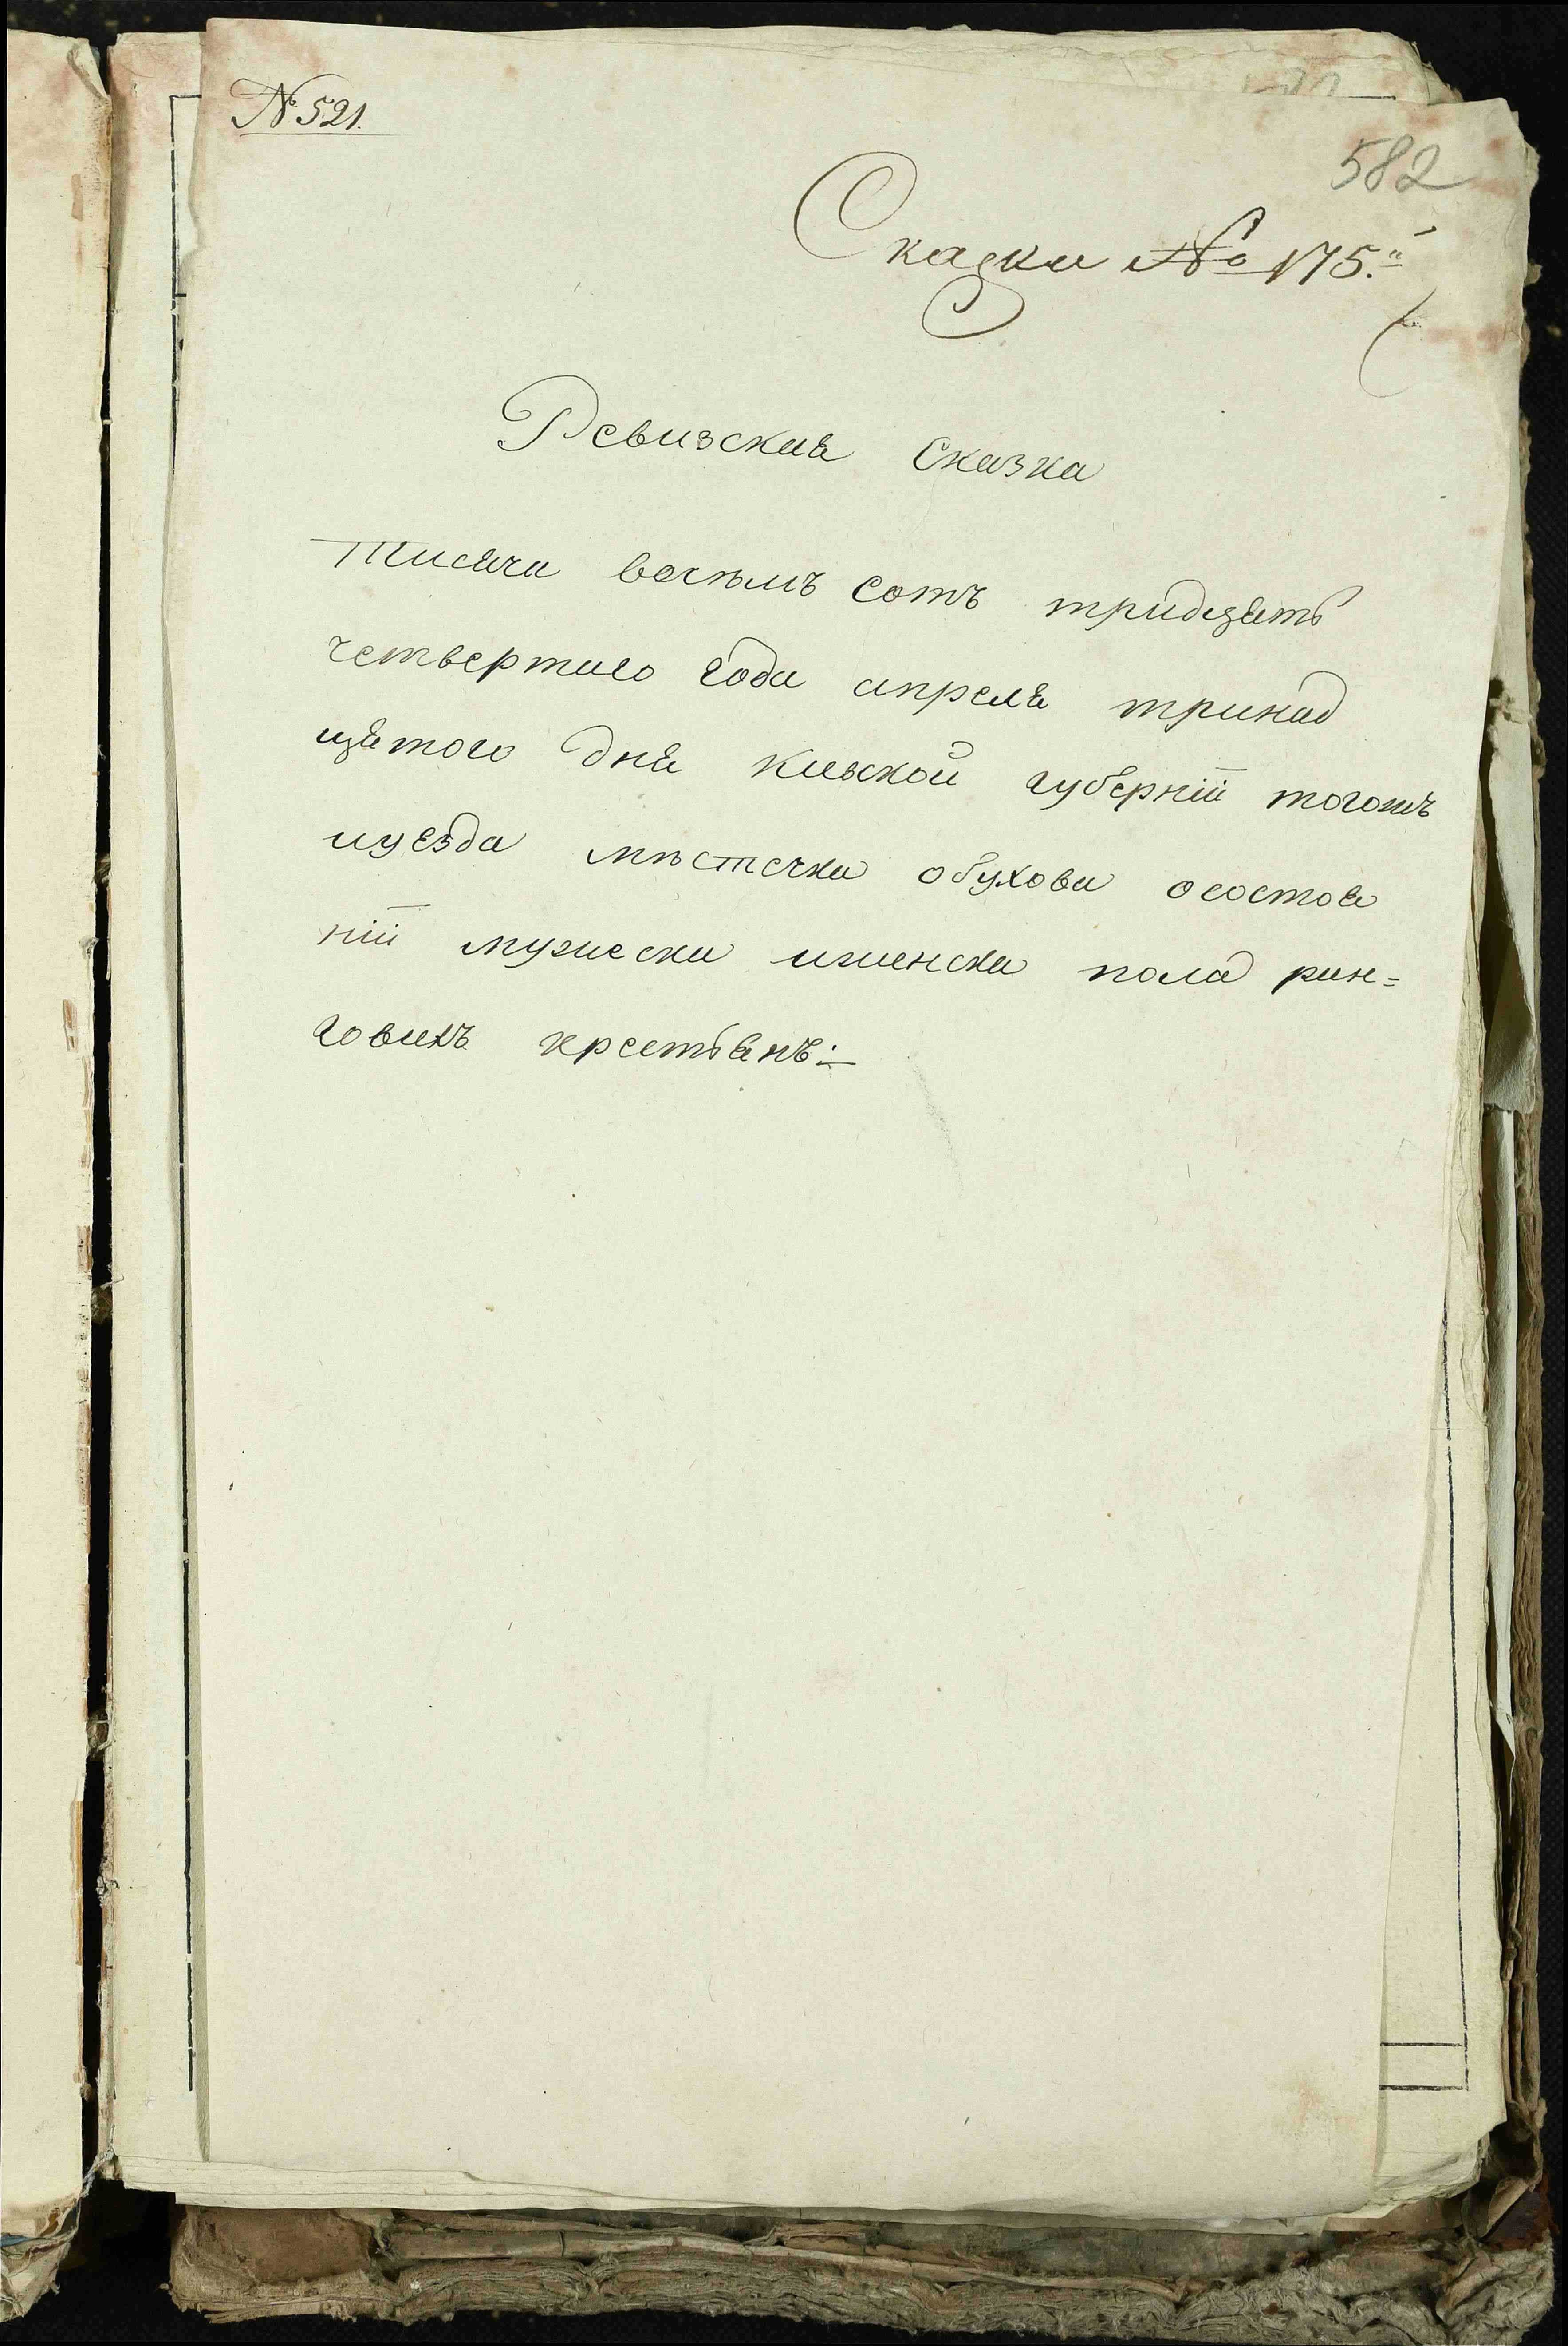 № 521.
582
Сказки № 175.й
Ревизская Сказка
Тисяча восѣмъ Сотъ тридцать
четвертаго года апреля тринад
цятого дня Киевской губерніи тогожъ
иуезда мѣстечка обухова осостоя
ніи мужеска иженска пола ран=
говихъ крестьянъ: